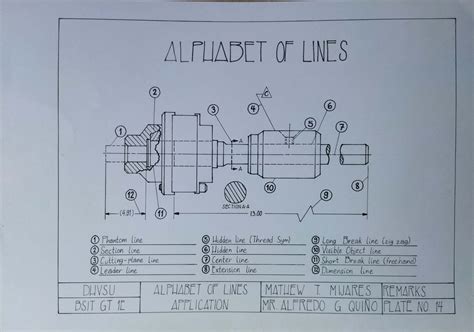 ALPHABET OF LINES
C
1
2
3
4
5
6
7
A
A
SECTION A-A
12
11
10
9
8
(4.01)
13.00
1 Phantom line
2 Section line
3 Cutting-plane line
4 Leader line
5 Hidden line (Thread Sym)
6 Hidden line
7 Center line
8 Extension line
9 Long Break line (zig zag)
10 Visible Object line
11 Short Break line (freehand)
12 Dimension line
DHVSU
BSIT GT 1E
ALPHABET OF LINES
APPLICATION
MATHEW T. MIJARES
MR. ALFREDO G. QUIÑO
REMARKS
PLATE NO. 14